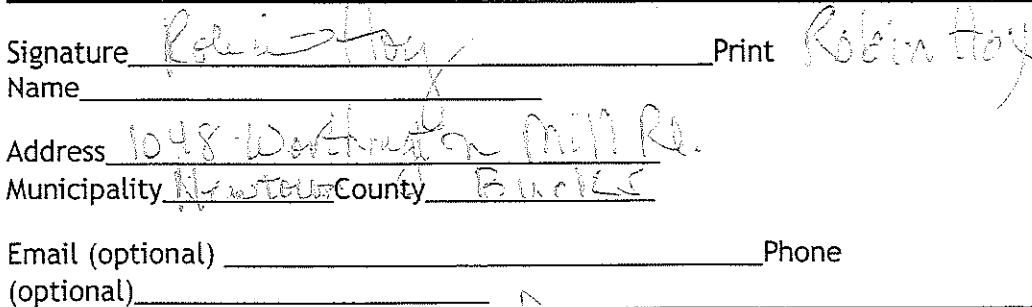 Signature Robin Hoy Print Robin Hoy
Name
Address 1048 Worthington Mill Rd.
Municipality Newtown County Bucks
Email (optional) Phone
(optional)